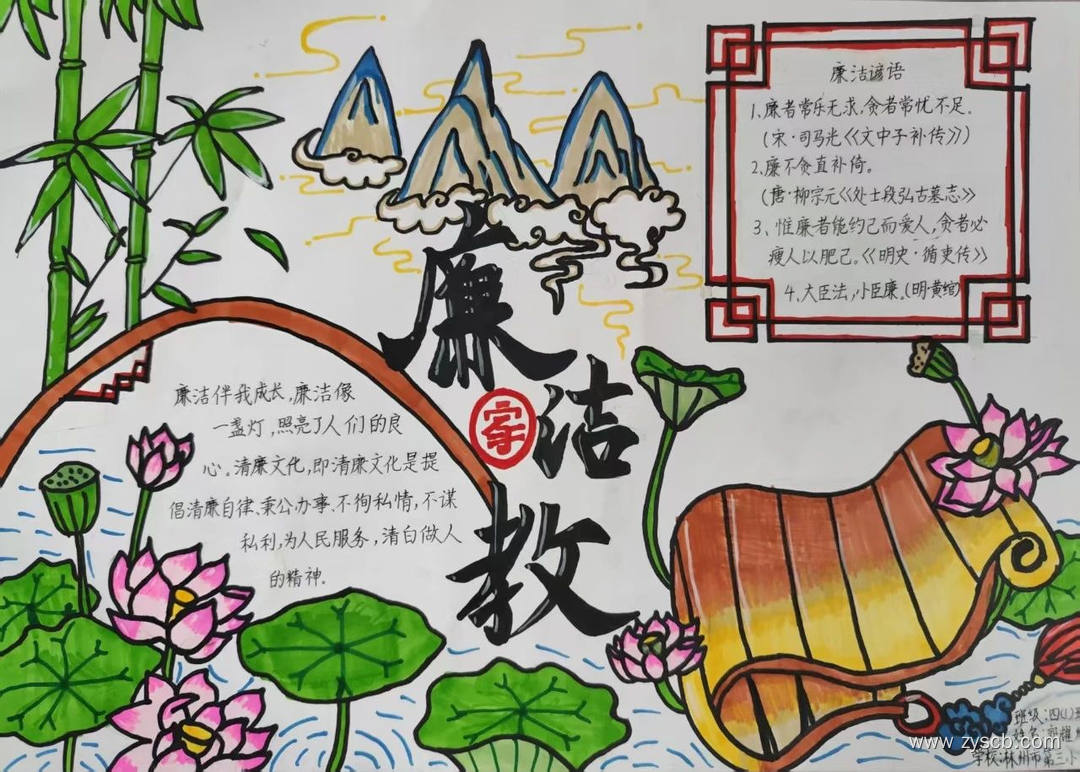 廉洁谚语
1、廉者常乐无求,贪者常忧不足。
(宋·司马光《文中子补传》)
2、廉不贪直补倚。
(唐·柳宗元《处士段弘古墓志》
3、惟廉者能约己而爱人,贪者必
瘦人以肥己。《明史·循吏传》
4、大臣法,小臣廉。(明·黄绾)
廉
洁
教
廉洁伴我成长,廉洁像
一盏灯,照亮了人们的良
心。清廉文化,即清廉文化是提
倡清廉自律、秉公办事、不徇私情,不谋
私利,为人民服务,清白做人
的精神。
班级:四(1)班
学校:林州市第三小
www.zyscb.com